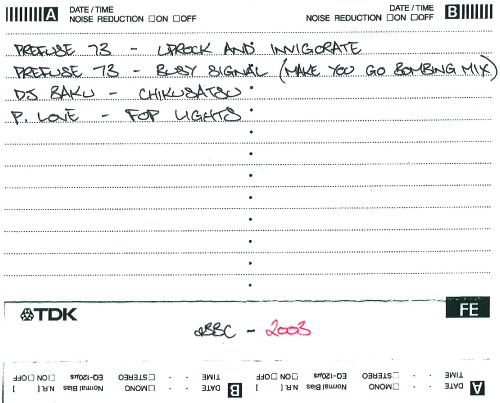 A DATE / TIME
NOISE REDUCTION □ON □OFF
DATE / TIME B
NOISE REDUCTION □ON □OFF
PREFUSE 73 - UPROCK AND INVIGORATE
PREFUSE 73 - BUSY SIGNAL (MAKE YOU GO BOMBING MIX)
DJ BAKU - CHIKUSATSU
P. LOVE - FOP LIGHTS
TDK
FE
2BBC - 2003
A DATE · · □MONO N.R. [ ] Normal Bias
TIME □STEREO EQ-120µs □ON □OFF
B DATE · · □MONO N.R. [ ] Normal Bias
TIME □STEREO EQ-120µs □ON □OFF